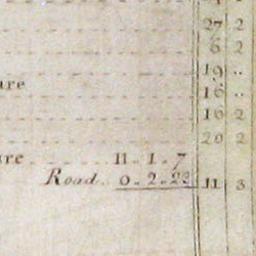 27 2
6 2
19 ..
are 16 ..
16 2
20 2
are 11 . 1 . 7
Road 0 . 2 . 23 11 3